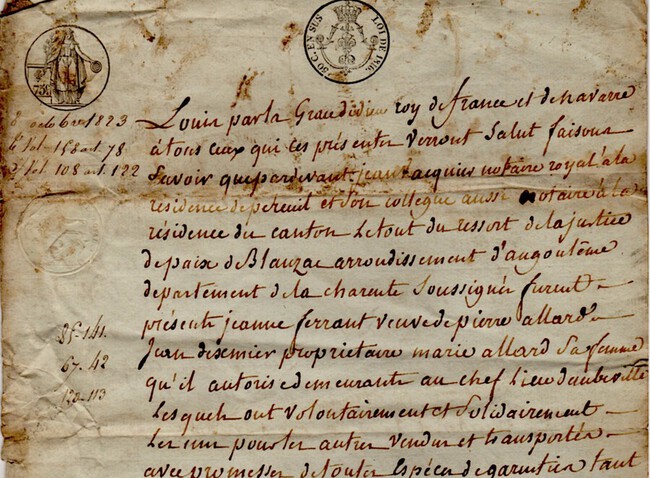 30 C. EN SUS
LOI DE 1816.
8 octobre 1823
1 vol 158 art. 78
2 vol 108 art. 122
Louis par la Grace didieu roy de france et de navarre
à tous ceux qui ces présentes verront Salut faisons
Savoir que pardevant jean jacquier notaire royal à la
residence depereuil et Son collegue aussi notaire à la
résidence du canton Le tout du ressort de la justice
de paix de Blanzac arrondissement d'angoulême
département de la charente Soussignés furent
présents jeanne ferrant veuve de pierre allard
Jean dexmier propriétaire marie allard Sa femme
qu'il autorise demeurants au chef Lieu daubeville
Lesquels ont Volontairement et Solidairement
Les uns pour les autres Vendu et transportés
avec promesses de toutes Espéces de garanties tant
85-141
67-42
120-113